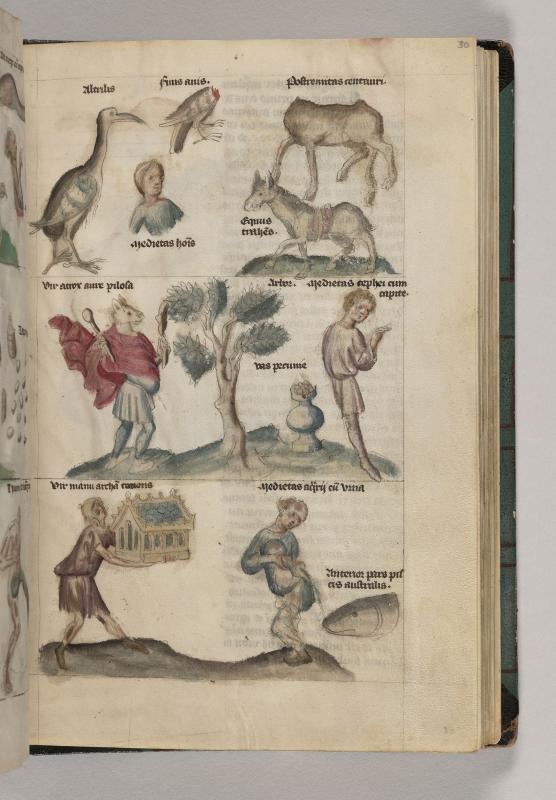 30
Altilis
finis auis.
Postremitas centauri.
Medietas hoīs
Equus
trahēs.
Vir atrox aure pilosa
Arbor. Medietas cephei cum
capite.
vas pecunie
Vir manu archā tenens
Medietas aq̄rij cū vrna
Anterior pars pis
cis australis.